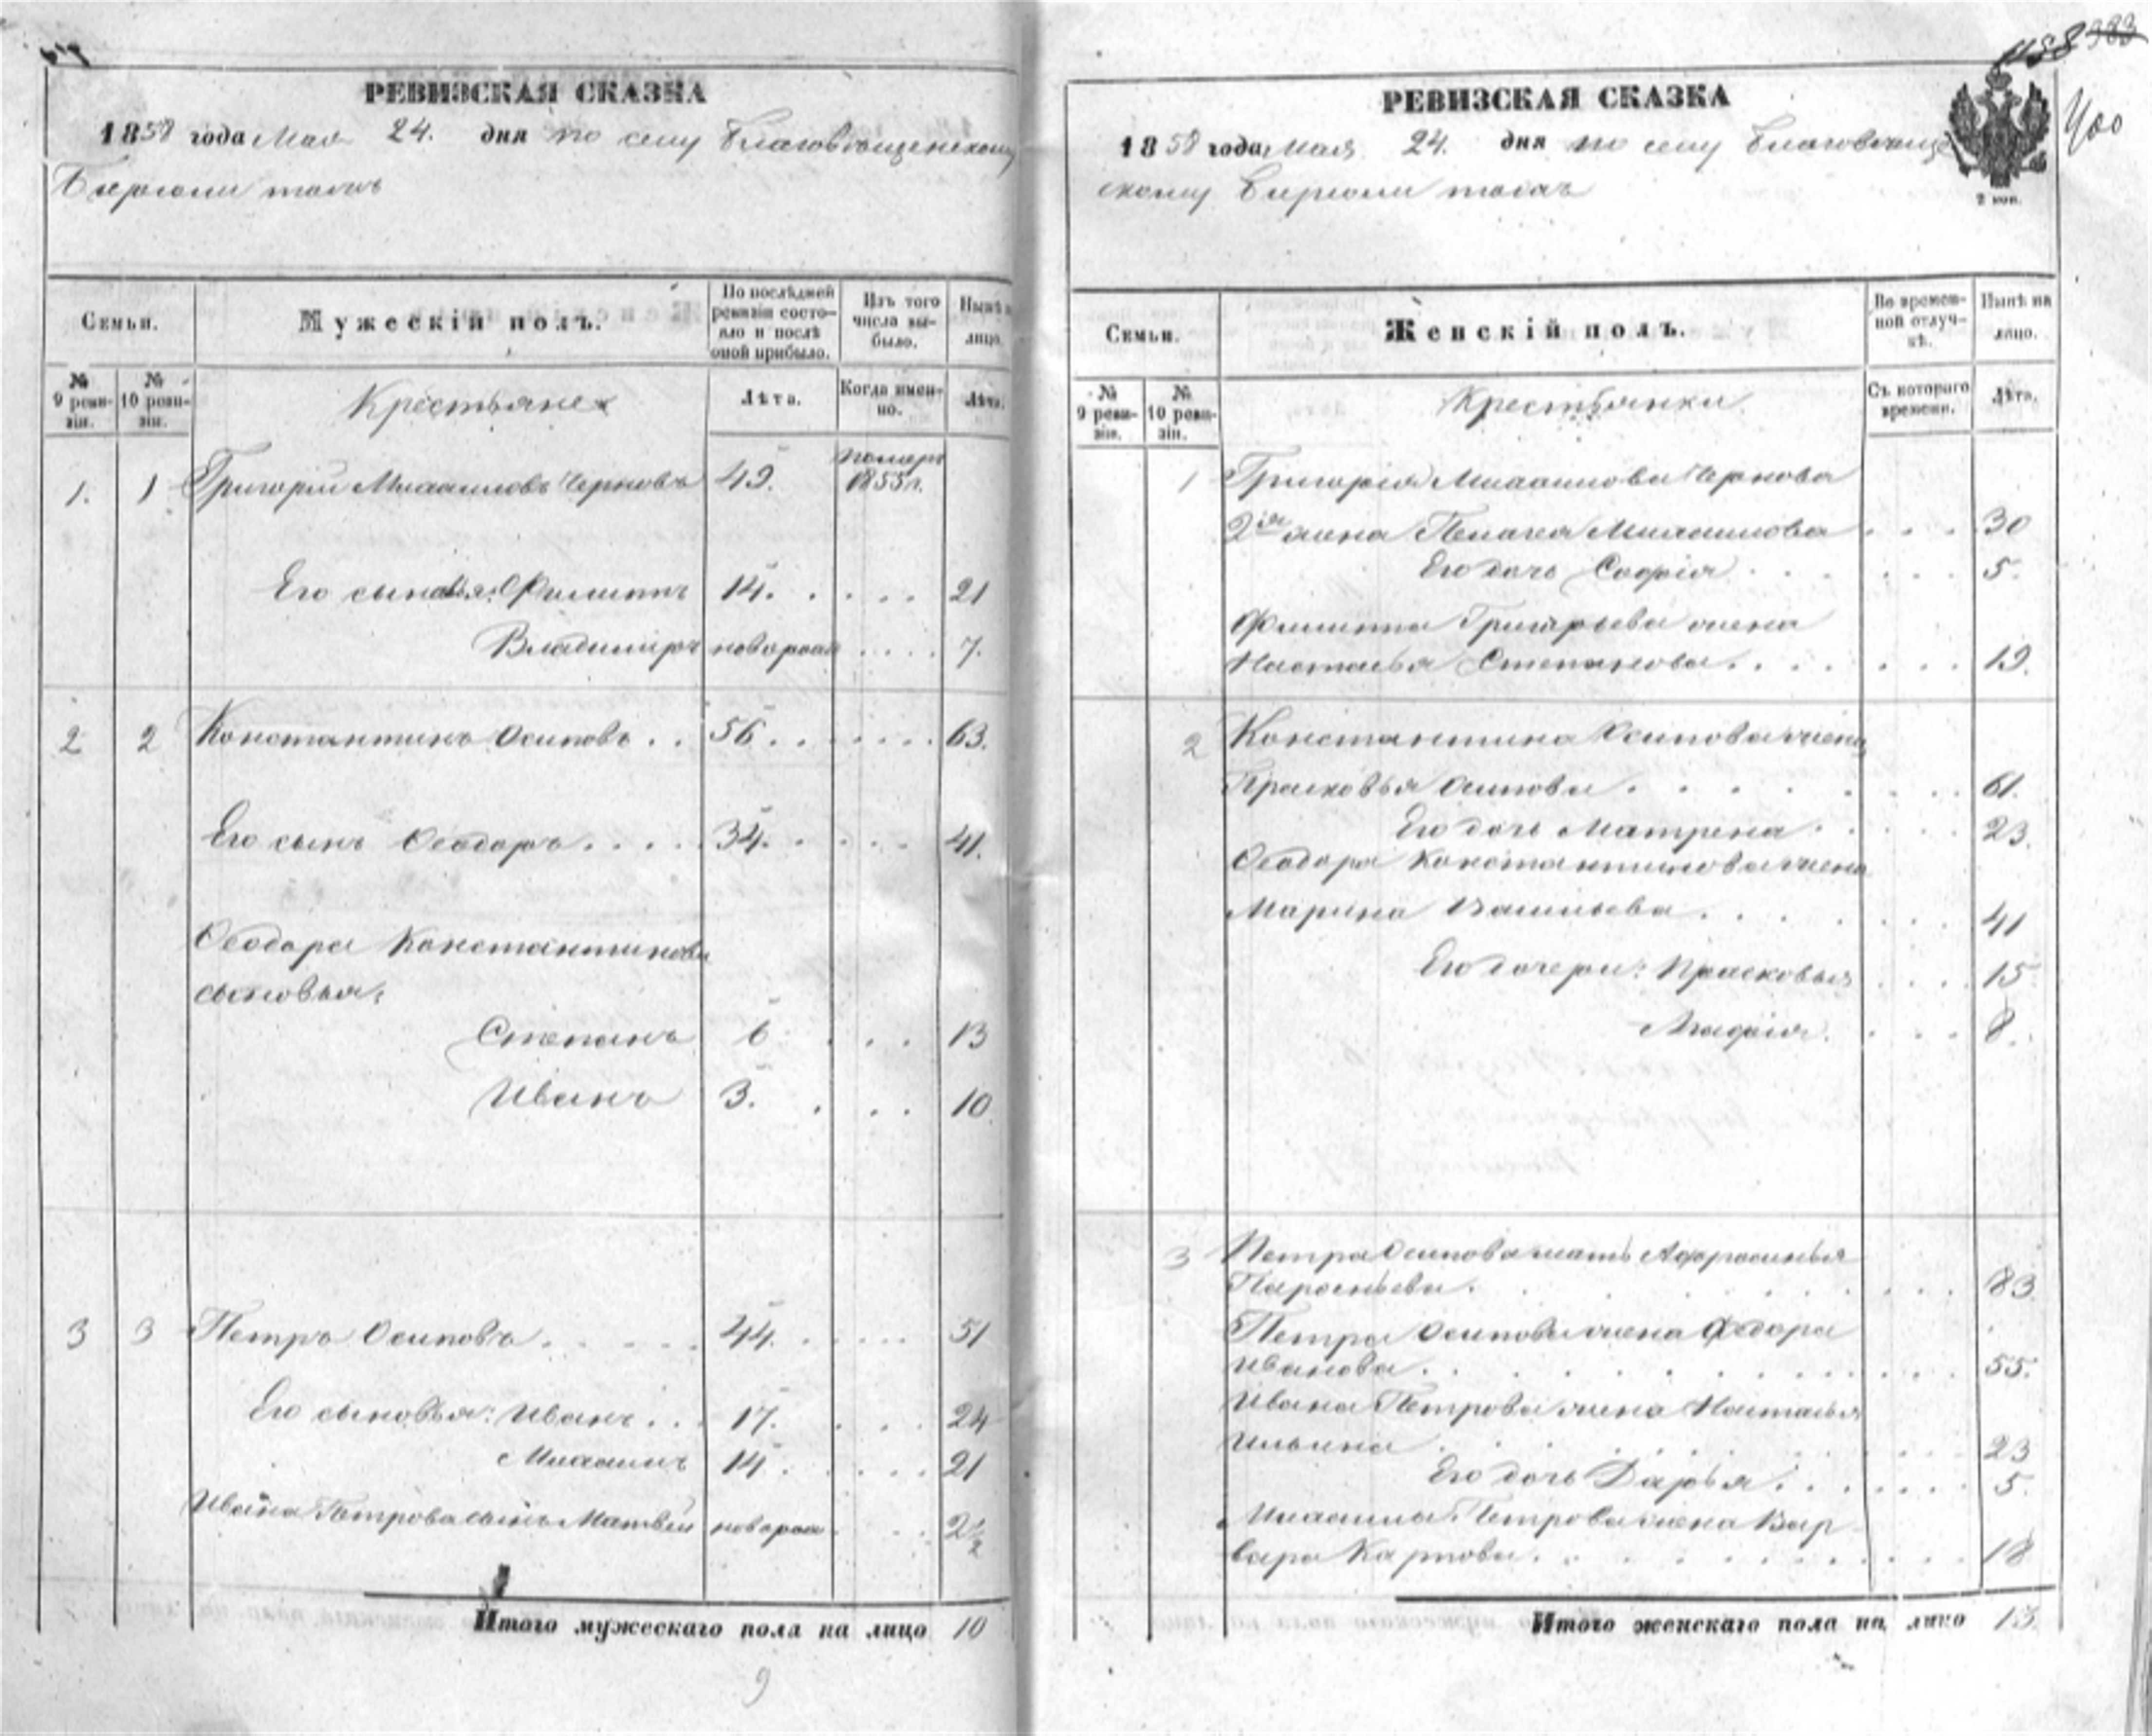 РЕВИЗСКАЯ СКАЗКА
1858 года Мая 24. дня по селу Благовѣщенскому
Бирюли тожъ
Семьи.
Мужескій полъ.
По послѣдней ревизіи состояло и послѣ оной прибыло.
Изъ того числа выбыло.
Нынѣ на лицо.
№ 9 ревизіи.
№ 10 ревизіи.
Крестьяне
Лѣта.
Когда именно.
Лѣта.
1. 1 Григорій Михаиловъ Черновъ 49. померъ 1853 г.
Его сыновья: Филиппъ 14. . . . . 21
Владиміръ новорожд . . . . 7.
2 2 Константинъ Осиповъ . . 56 . . . . . . . 63.
Его сынъ Ѳеодоръ . . . . . 34. . . . . 41.
Ѳеодора Константинова
сыновья:
Степанъ 6 . . . 13
Иванъ 3. . . . 10
3 3 Петръ Осиповъ . . . . . 44. . . . . 51
Его сыновья: Иванъ . . . 17. . . . 24
Михаилъ 14. . . . . 21
Ивана Петрова сынъ Матвѣй новорож . . . 2 1/2
Итого мужескаго пола на лицо 10
9
458 383
400
РЕВИЗСКАЯ СКАЗКА
1858 года Мая 24. дня по селу Благовѣщен
скому Бирюли тожъ
2 коп.
Семьи.
Женскій полъ.
Во временной отлучкѣ.
Нынѣ на лицо.
№ 9 ревизіи.
№ 10 ревизіи.
Крестьянки
Съ котораго времени.
Лѣта.
1 Григорія Михаилова Чернова
2я жена Пелагея Михаилова . . . 30
Его дочь Софія . . . . . . 5.
Филиппа Григорьева жена
Настасья Степанова . . . . . . . 19.
2 Константина Осипова жена
Прасковья Осипова . . . . . . . 61.
Его дочь Матрена . . . . . 23.
Ѳеодора Константинова жена
Марина Васильева . . . . . . . 41
Его дочери: Прасковья . . . . 15
Агафія . . . . 8.
3 Петра Осипова мать Афросинья
. . . . . . . . . 83
Петра Осипова жена Федора
Иванова . . . . . . . . . . . 55.
Ивана Петрова жена Настасья
Ильина . . . . . . . . . . 23
Его дочь Дарья . . . . . . . 5.
Михаила Петрова жена Вар-
вара Карпова . . . . . . . . . . 18
Итого женскаго пола на лицо 13.